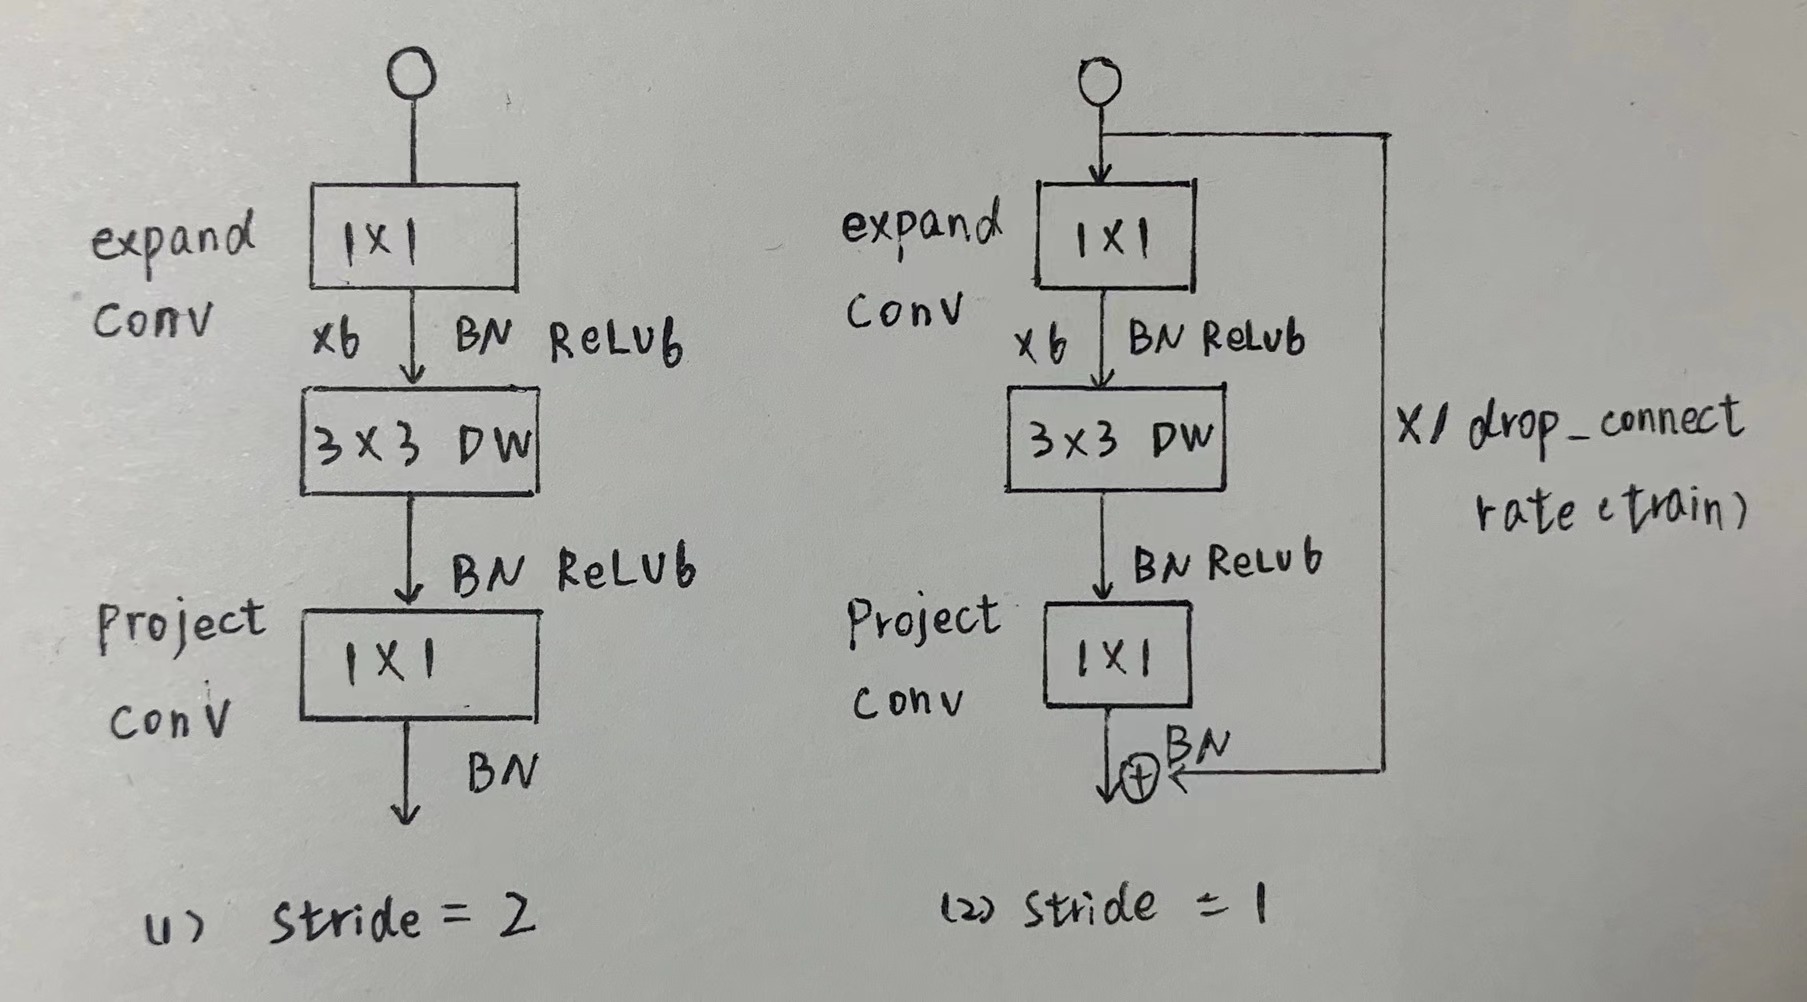 expand
conv
1X1
x6
BN ReLU6
3x3 DW
BN ReLU6
Project
conv
1X1
BN
(1) stride = 2
expand
conv
1X1
x6
BN ReLU6
3x3 DW
BN ReLU6
Project
conv
1X1
BN
+
X/drop_connect
rate (train)
(2) stride = 1